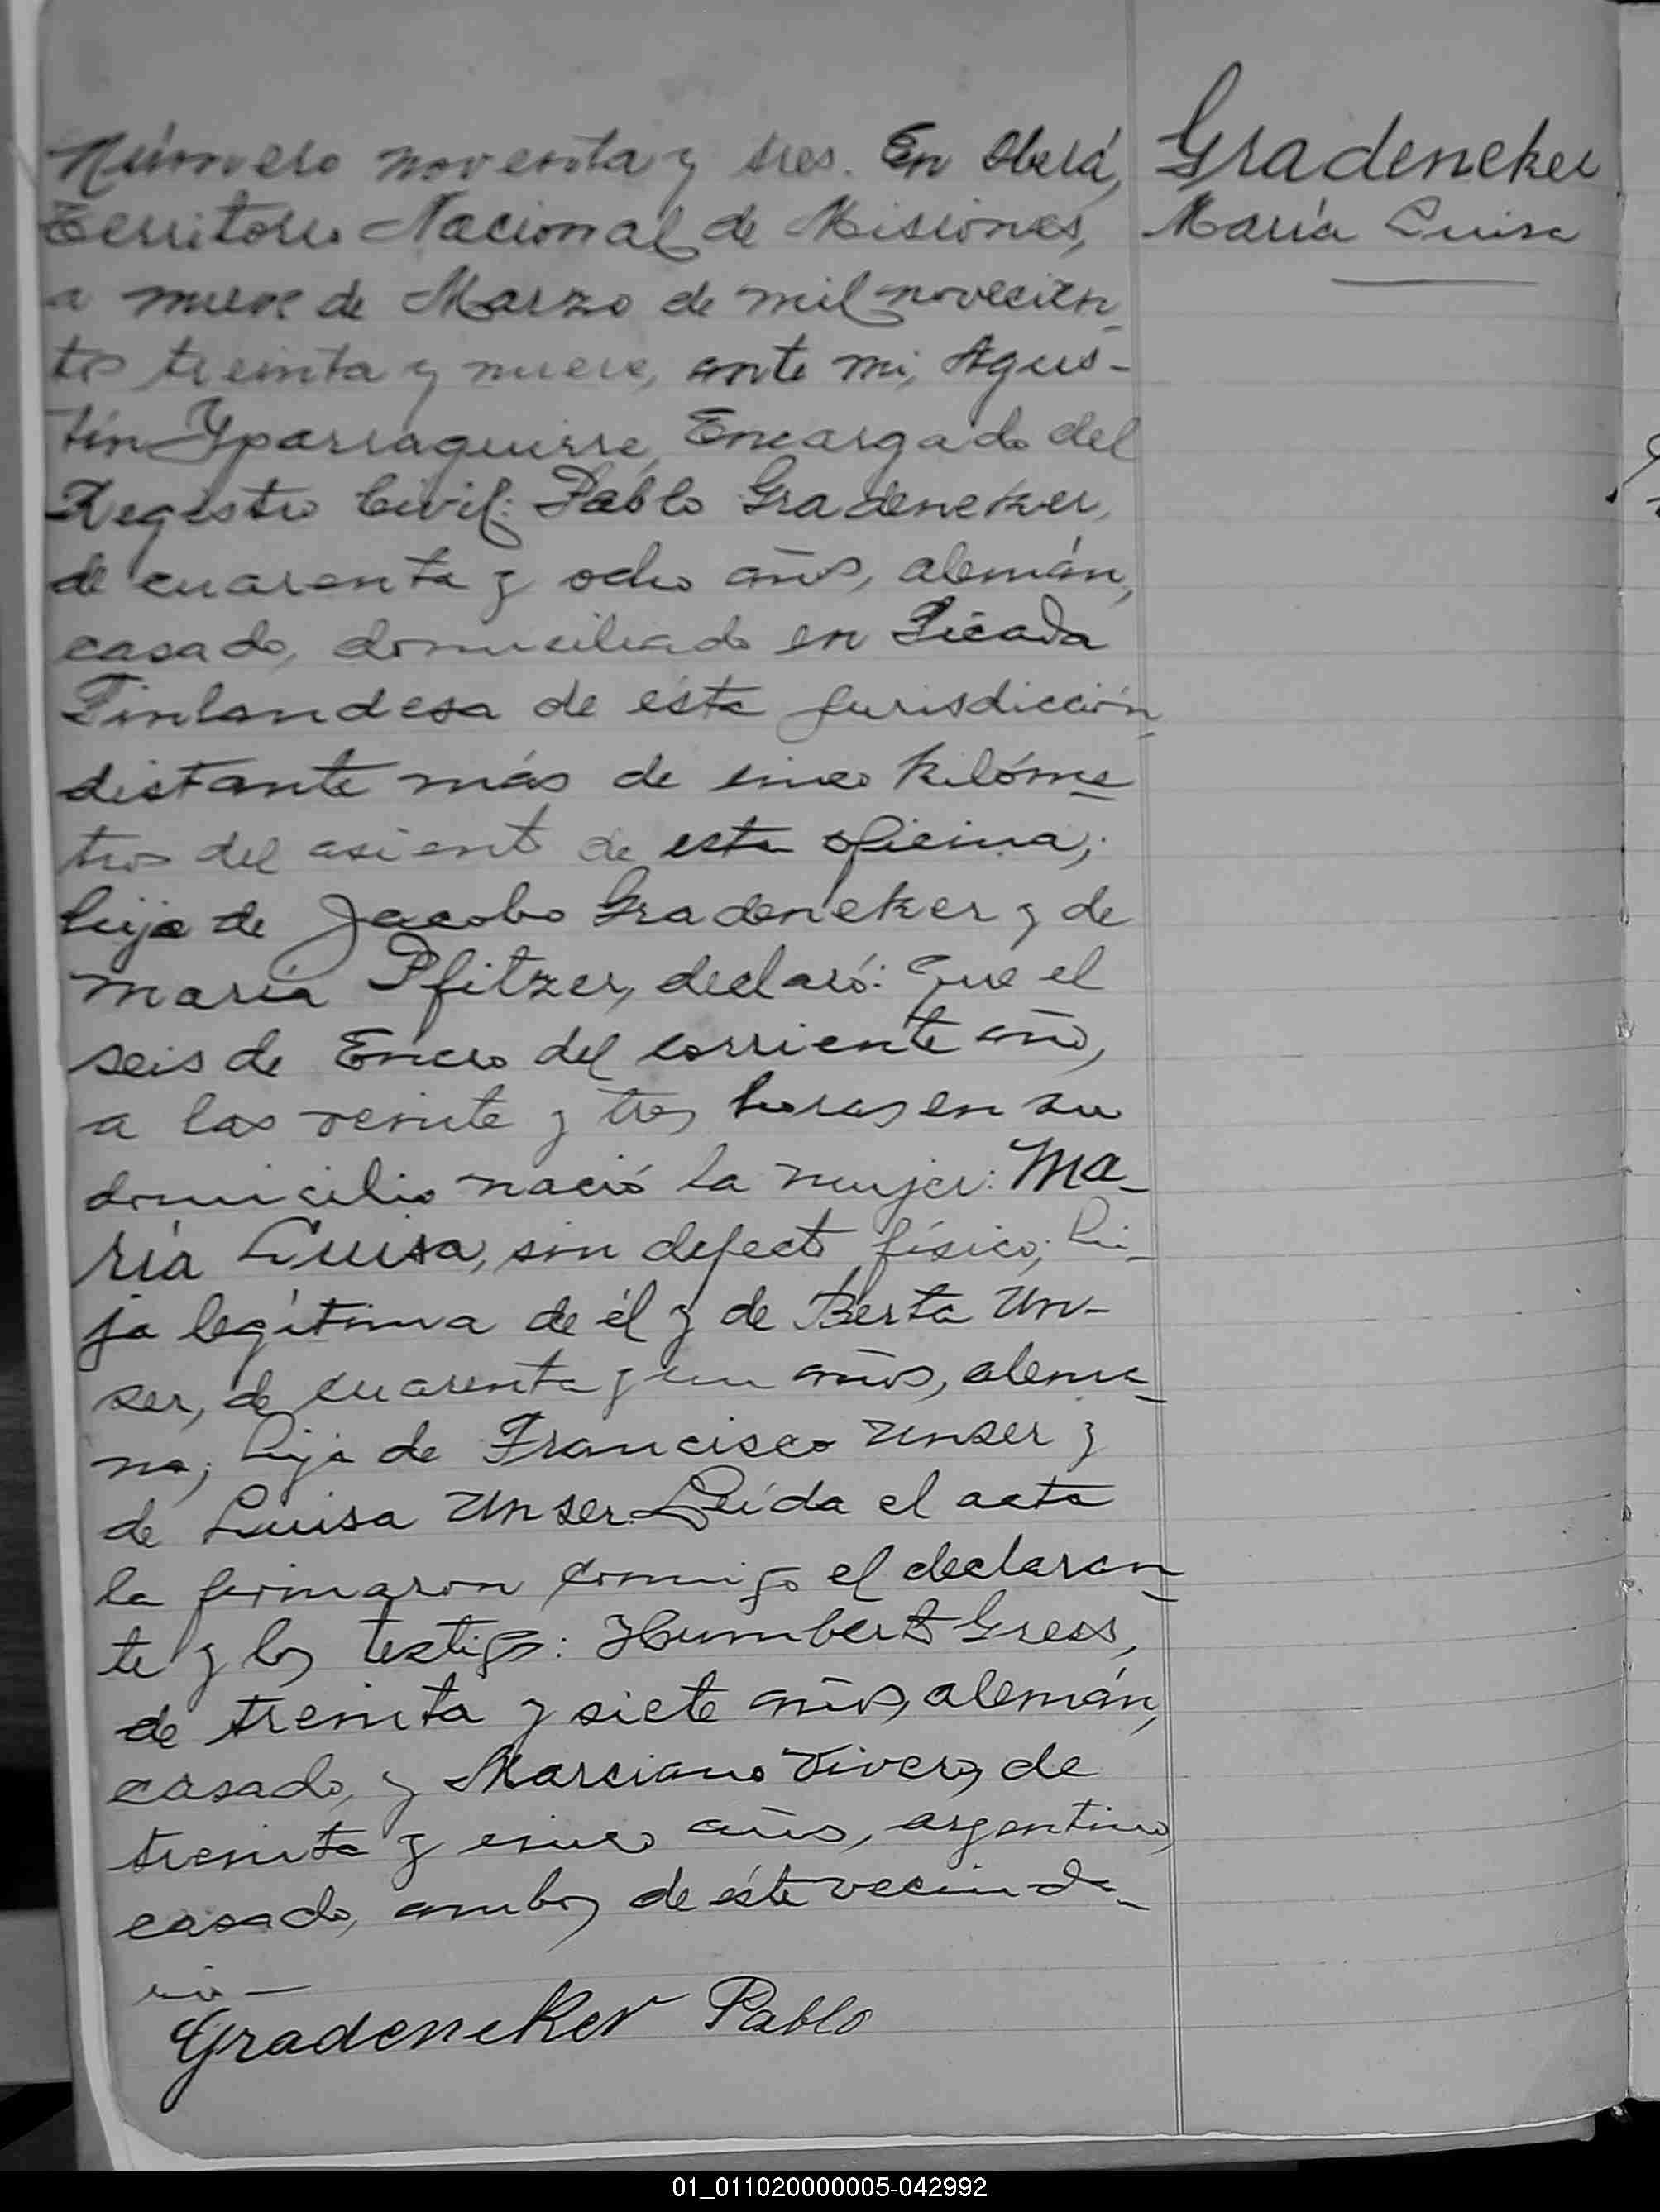 Número noventa y tres. En Oberá,
Territorio Nacional de Misiones,
a nueve de Marzo de mil novecien-
tos treinta y nueve, ante mi, Agus-
tín Yparraguirre, Encargado del
Registro Civil: Pablo Gradeneker,
de cuarenta y ocho años, alemán,
casado, domiciliado en Picada
Finlandesa de ésta jurisdicción
distante más de cinco kilóme-
tros del asiento de esta oficina;
hijo de Jacobo Gradeneker y de
María Pfitzer, declaró: Que el
seis de Enero del corriente año,
a las veinte y tres horas en su
domicilio nació la mujer: Ma-
ría Luisa, sin defecto físico; hi-
ja legítima de él y de Berta Un-
ser, de cuarenta y un años, alema-
na; hija de Francisco Unser y
de Luisa Unser. Leída el acta
la firmaron conmigo el declaran-
te y los testigos: Humberto Gress,
de treinta y siete años, alemán,
casado, y Marciano Viveros, de
treinta y cinco años, argentino,
casado, ambos de éste vecinda-
rio—
Gradeneker Pablo
Gradeneker
María Luisa
01_011020000005-042992